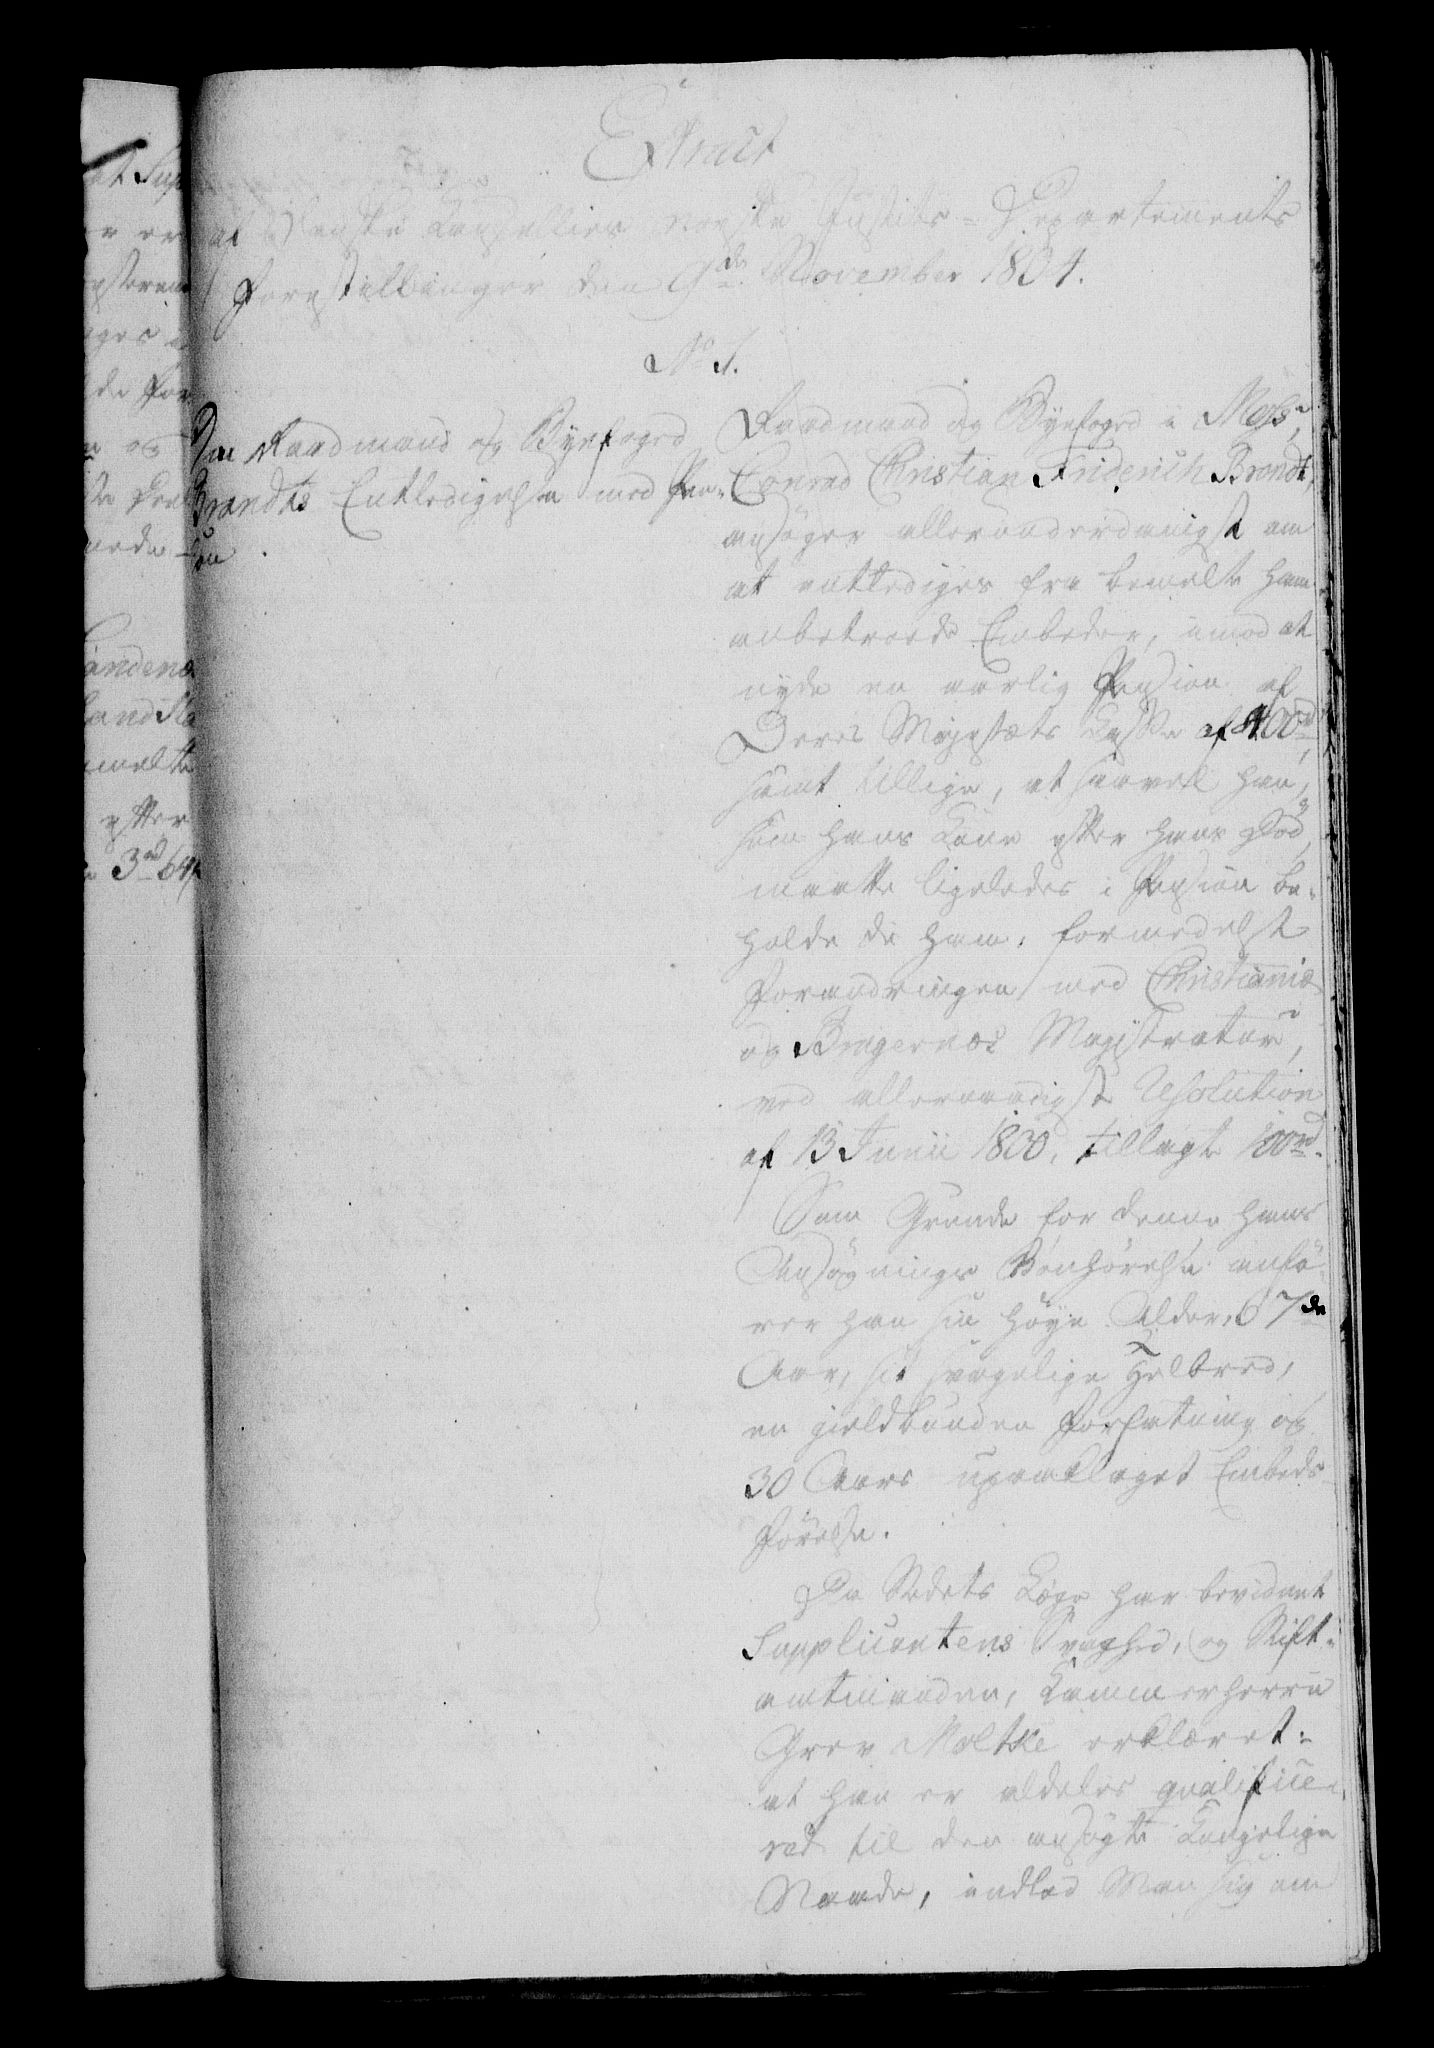 Extract
af Danske Cancellies norske Justits-Departements
Forestillinger den 9de November 1804.
No 1.
Om Raadmand og Byefoged
Brandts Entledigelse med Pen-
sion
Raadmand og Byefoged i Moss,
Conrad Christian Friderich Brandt,
ansøger allerunderdanigst om
at entlediges fra bemelte ham
anbetroede Embeder, imod at
nyde en aarlig Pension af
Deres Majestæts Casse af 400rd,
samt tillige, at saavel han,
som hans Kone efter hans Død,
maatte ligeledes i Pension be-
holde de ham, formedelst
Forandringen med Christiania
og Bragernæs Magistrater,
ved allernaadigst Resolution
af 13 Junii 1800, tillagte 100rd.
Som Grunde for denne hans
Ansøgnings Bønhørelse anfø-
rer han sin høye Alder, 67de
Aar, sit svagelige Helbred,
en gieldbunden Forfatning og
30 Aars upaaklaget Embeds-
Førelse.
Da Stedets Læge har bevidnet
Supplicantens Svaghed, og Stift-
amtmanden, Kammerherre
Grev Moltke erklæret:
at han er aldeles qualifice-
red til den ansøgte Kongelige
Naade, indlod Man sig om
at Sup
er er
de For
og
nede-
andenæ
land
melte
efter
3rd 64s